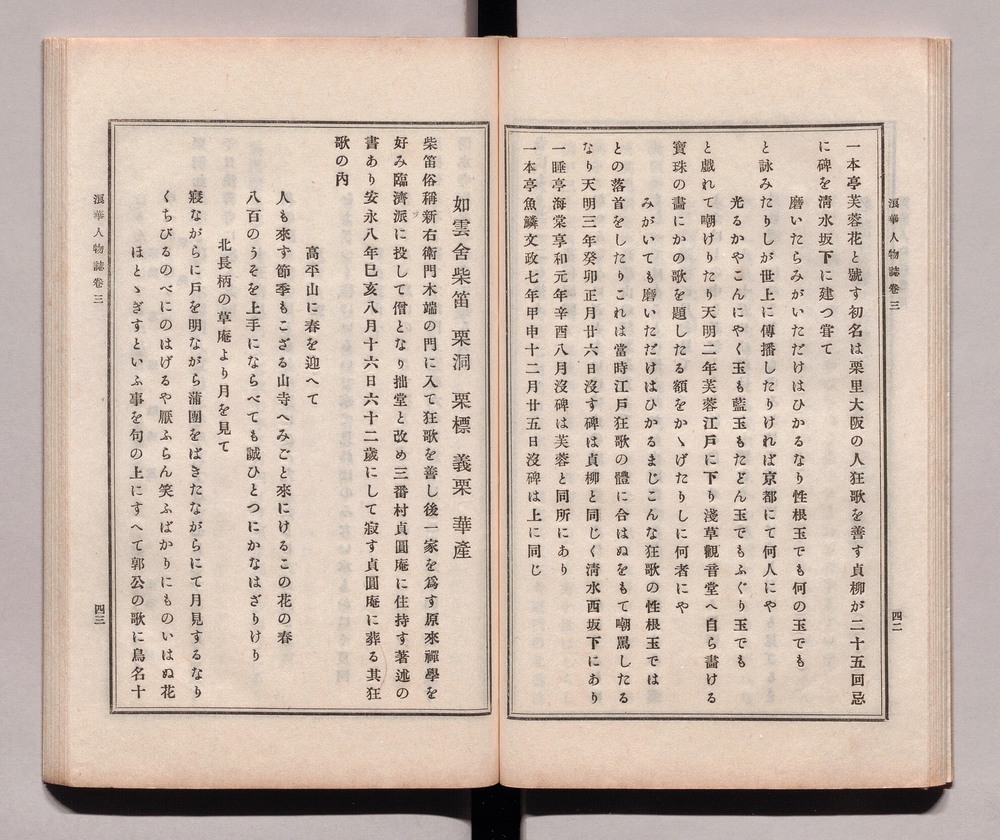 浪華人物誌卷三
四二
一本亭芙蓉花と號す初名は栗里大阪の人狂歌を善す貞柳が二十五回忌
に碑を清水坂下に建つ甞て
磨いたらみがいただけはひかるなり性根玉でも何の玉でも
と詠みたりしが世上に傳播したりければ京都にて何人にや
光るかやこんにやく玉も藍玉もたどん玉でもふぐり玉でも
と戯れて嘲けりたり天明二年芙蓉江戸に下り淺草觀音堂へ自ら畵ける
寳珠の畵にかの歌を題したる額をかゝげたりしに何者にや
みがいても磨いただけはひかるまじこんな狂歌の性根玉では
との落首をしたりこれは當時江戸狂歌の體に合はぬをもて嘲罵したる
なり天明三年癸卯正月廿六日沒す碑は貞柳と同じく清水西坂下にあり
一睡亭海棠享和元年辛酉八月沒碑は芙蓉と同所にあり
一本亭魚鱗文政七年甲申十二月廿五日沒碑は上に同じ
如雲舍柴笛 栗洞 栗標 義栗 華產
柴笛俗稱新右衛門木端の門に入て狂歌を善し後一家を爲す原來禪學を
好み臨濟派に投して僧となり拙堂と改め三番村貞圓庵に住持す著述の
書あり安永八年巳亥八月十六日六十二歲にして寂す貞圓庵に葬る其狂
歌の內
高平山に春を迎へて
人も來す節季もこざる山寺へみごと來にけるこの花の春
八百のうそを上手にならべても誠ひとつにかなはざりけり
北長柄の草庵より月を見て
寢ながらに戸を明ながら蒲團をばきたながらにて月見するなり
くちびるのべにのはげるや厭ふらん笑ふばかりにものいはぬ花
ほとゝぎすといふ事を句の上にすへて郭公の歌に鳥名十
浪華人物誌卷三
四三